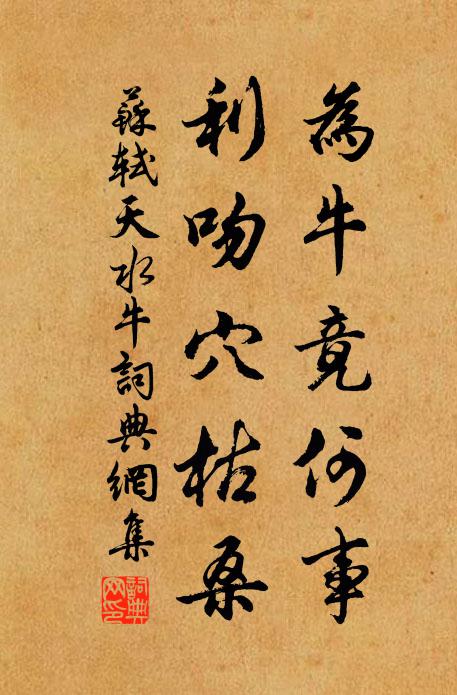 為牛竟何事
利吻穴枯桑
蘇軾天水牛詞典網集
詞典網印